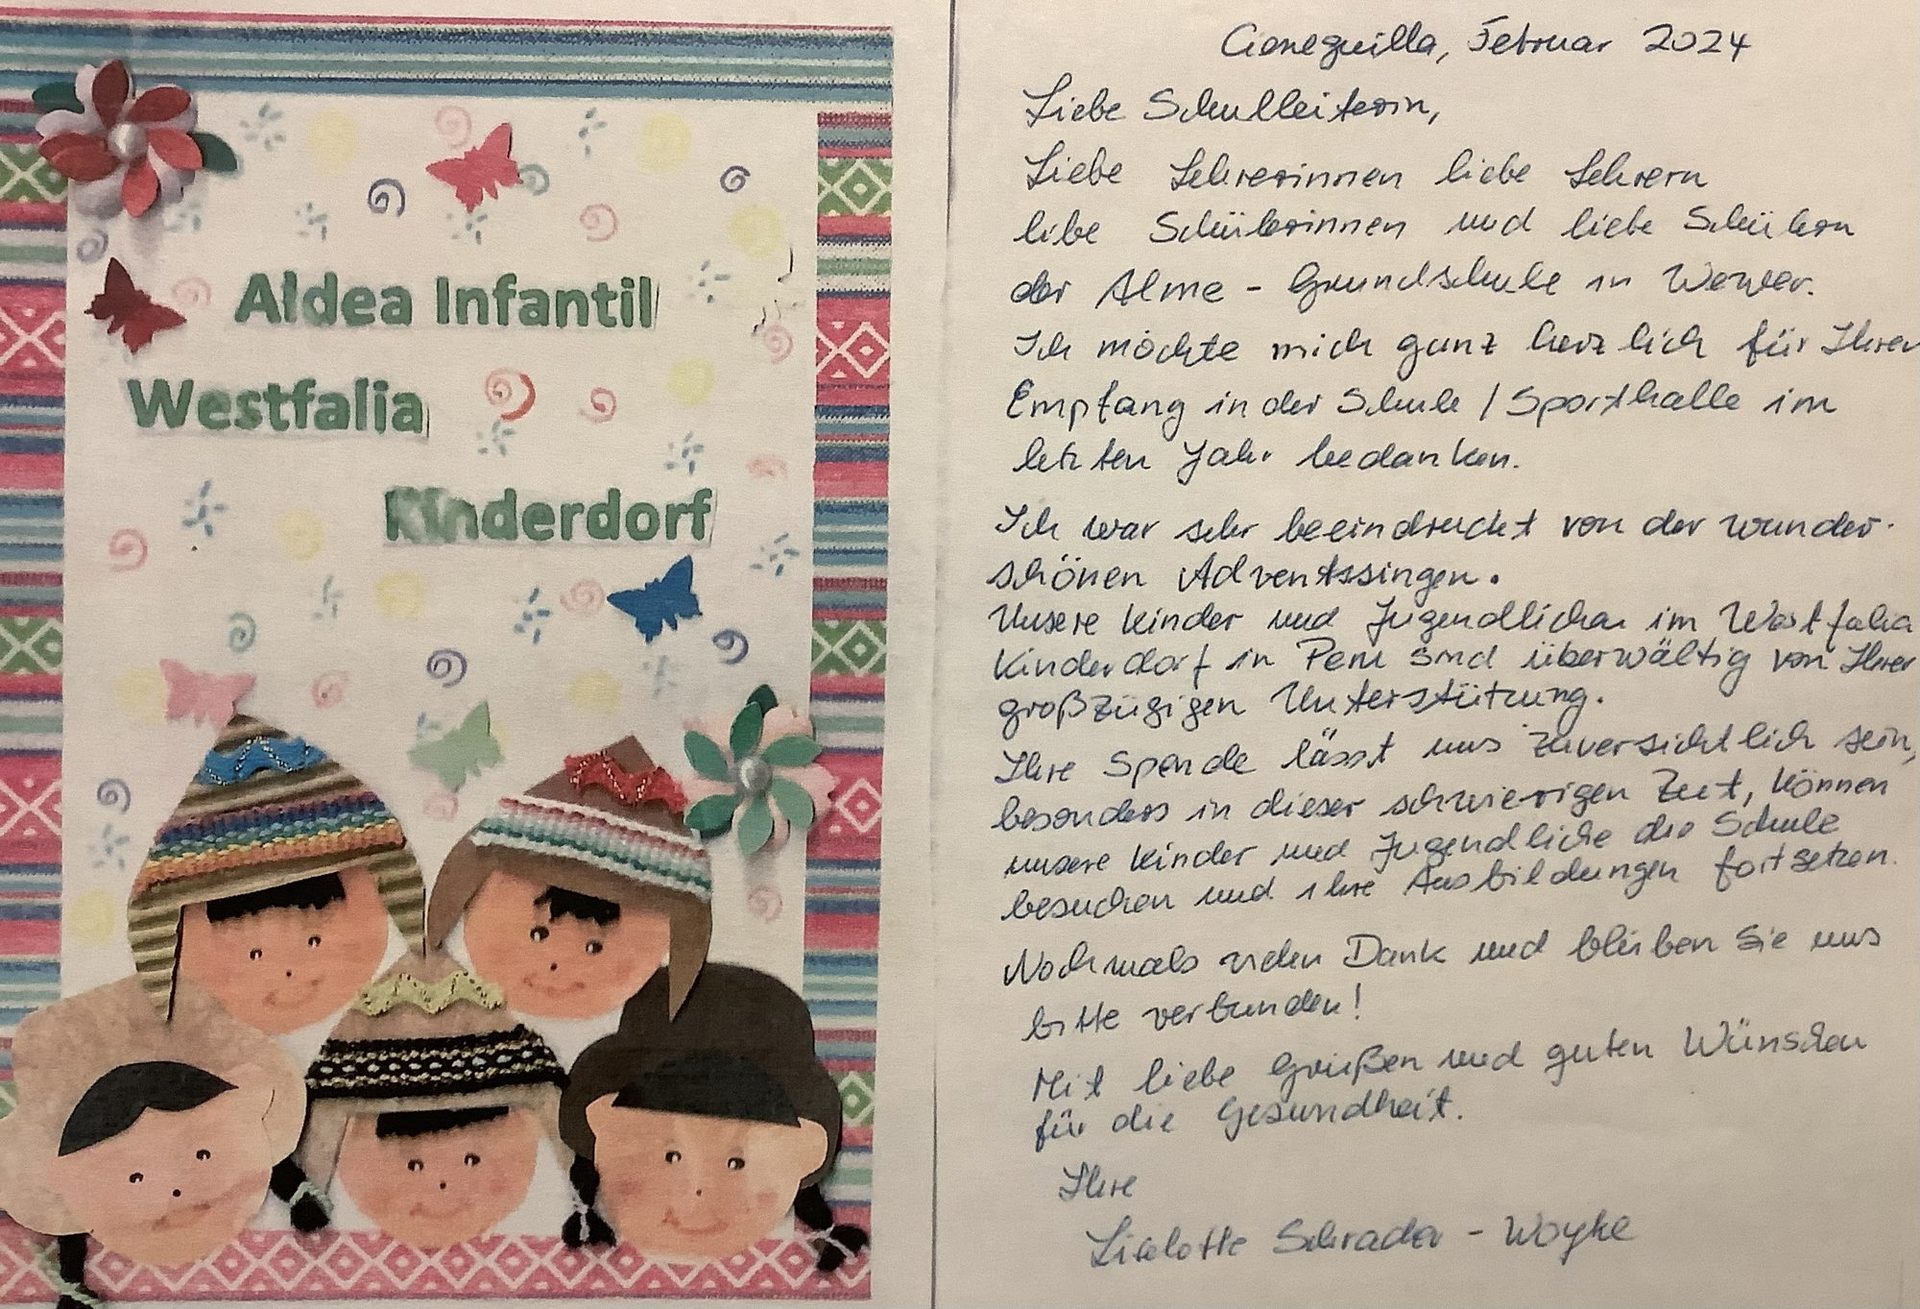 Aldea Infantil
Westfalia
Kinderdorf
Cieneguilla, Februar 2024
Liebe Schulleiterin,
Liebe Lehrerinnen liebe Lehrern
libe Schülerinnen und liebe Schülern
der Alme - Grundschule in Wewer.
Ich möchte mich ganz herzlich für Ihren
Empfang in der Schule / Sporthalle im
letzten Jahr bedanken.
Ich war sehr beeindruckt von der wunder-
schönen Adventssingen.
Unsere Kinder und Jugendlichen im Westfalia
Kinderdorf in Peru sind überwältig von Ihrer
großzügigen Unterstützung.
Ihre Spende lässt uns zuversichtlich sein,
besonders in dieser schwierigen Zeit, können
unsere Kinder und Jugendliche die Schule
besuchen und ihre Ausbildungen fortsetzen.
Nochmals vielen Dank und bleiben Sie uns
bitte verbunden!
Mit liebe Grüßen und guten Wünschen
für die Gesundheit.
Ihre
Liselotte Schrader - Woyke